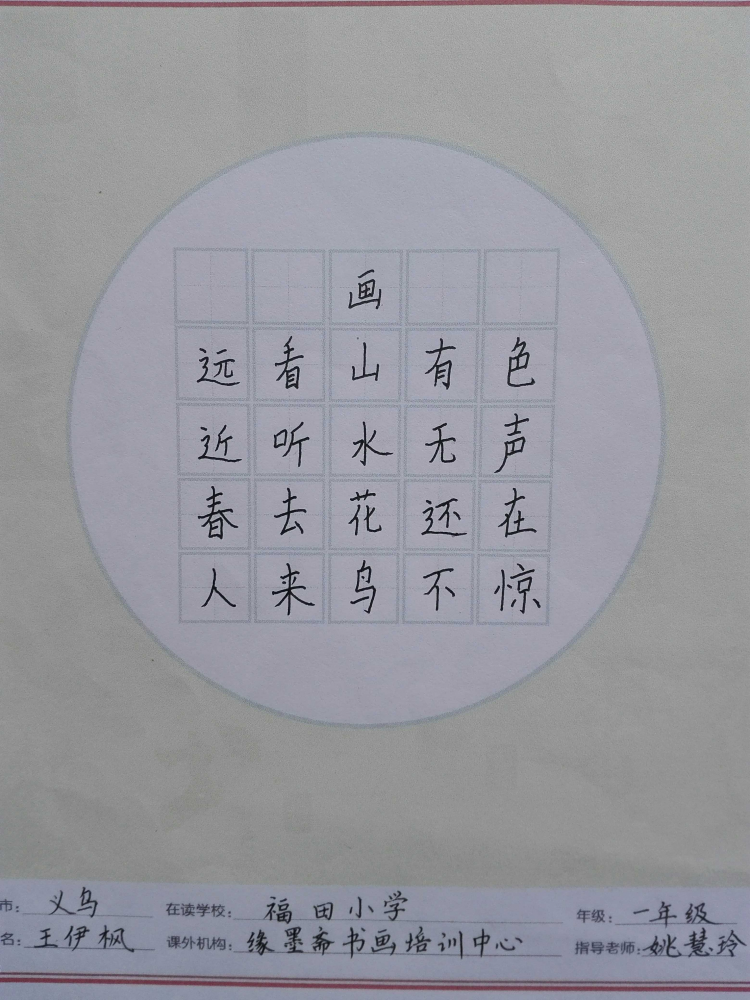 画
远看山有色
近听水无声
春去花还在
人来鸟不惊
市：义乌 在读学校：福田小学 年级：一年级
名：王伊枫 课外机构：缘墨斋书画培训中心 指导老师：姚慧玲